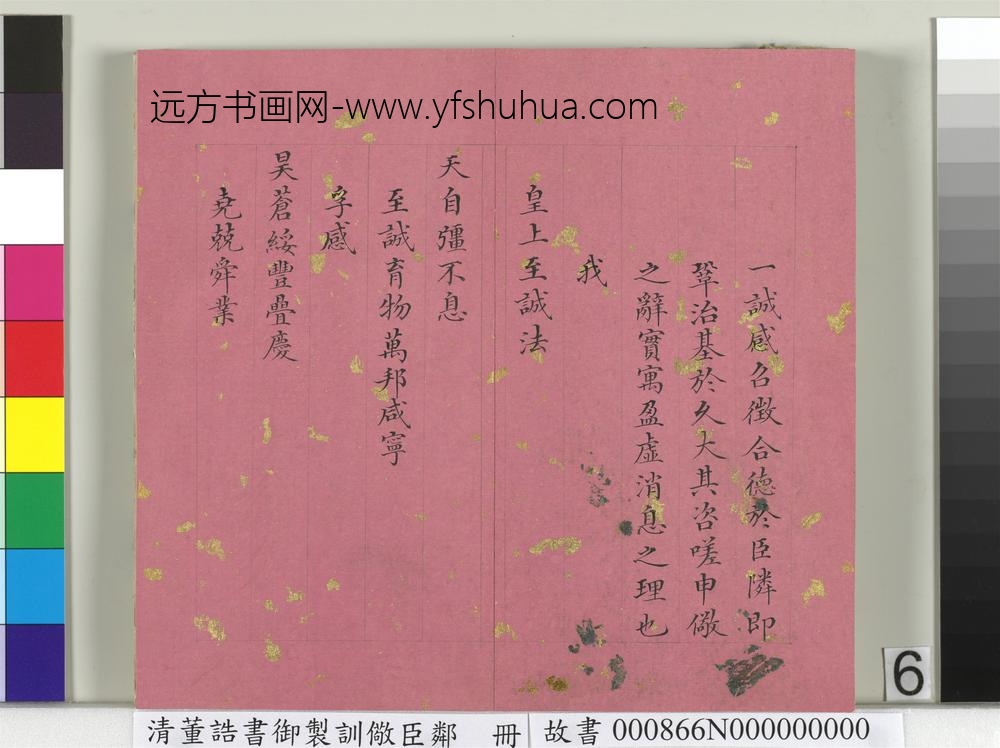 远方书画网-www.yfshuhua.com
一誠感召徵合德於臣隣即
鞏治基於久大其咨嗟申儆
之辭實寓盈虛消息之理也
我
皇上至誠法
天自彊不息
至誠育物萬邦咸寧
孚感
昊蒼綏豐疊慶
堯兢舜業
6
清董誥書御製訓儆臣鄰 冊 故書 000866N000000000